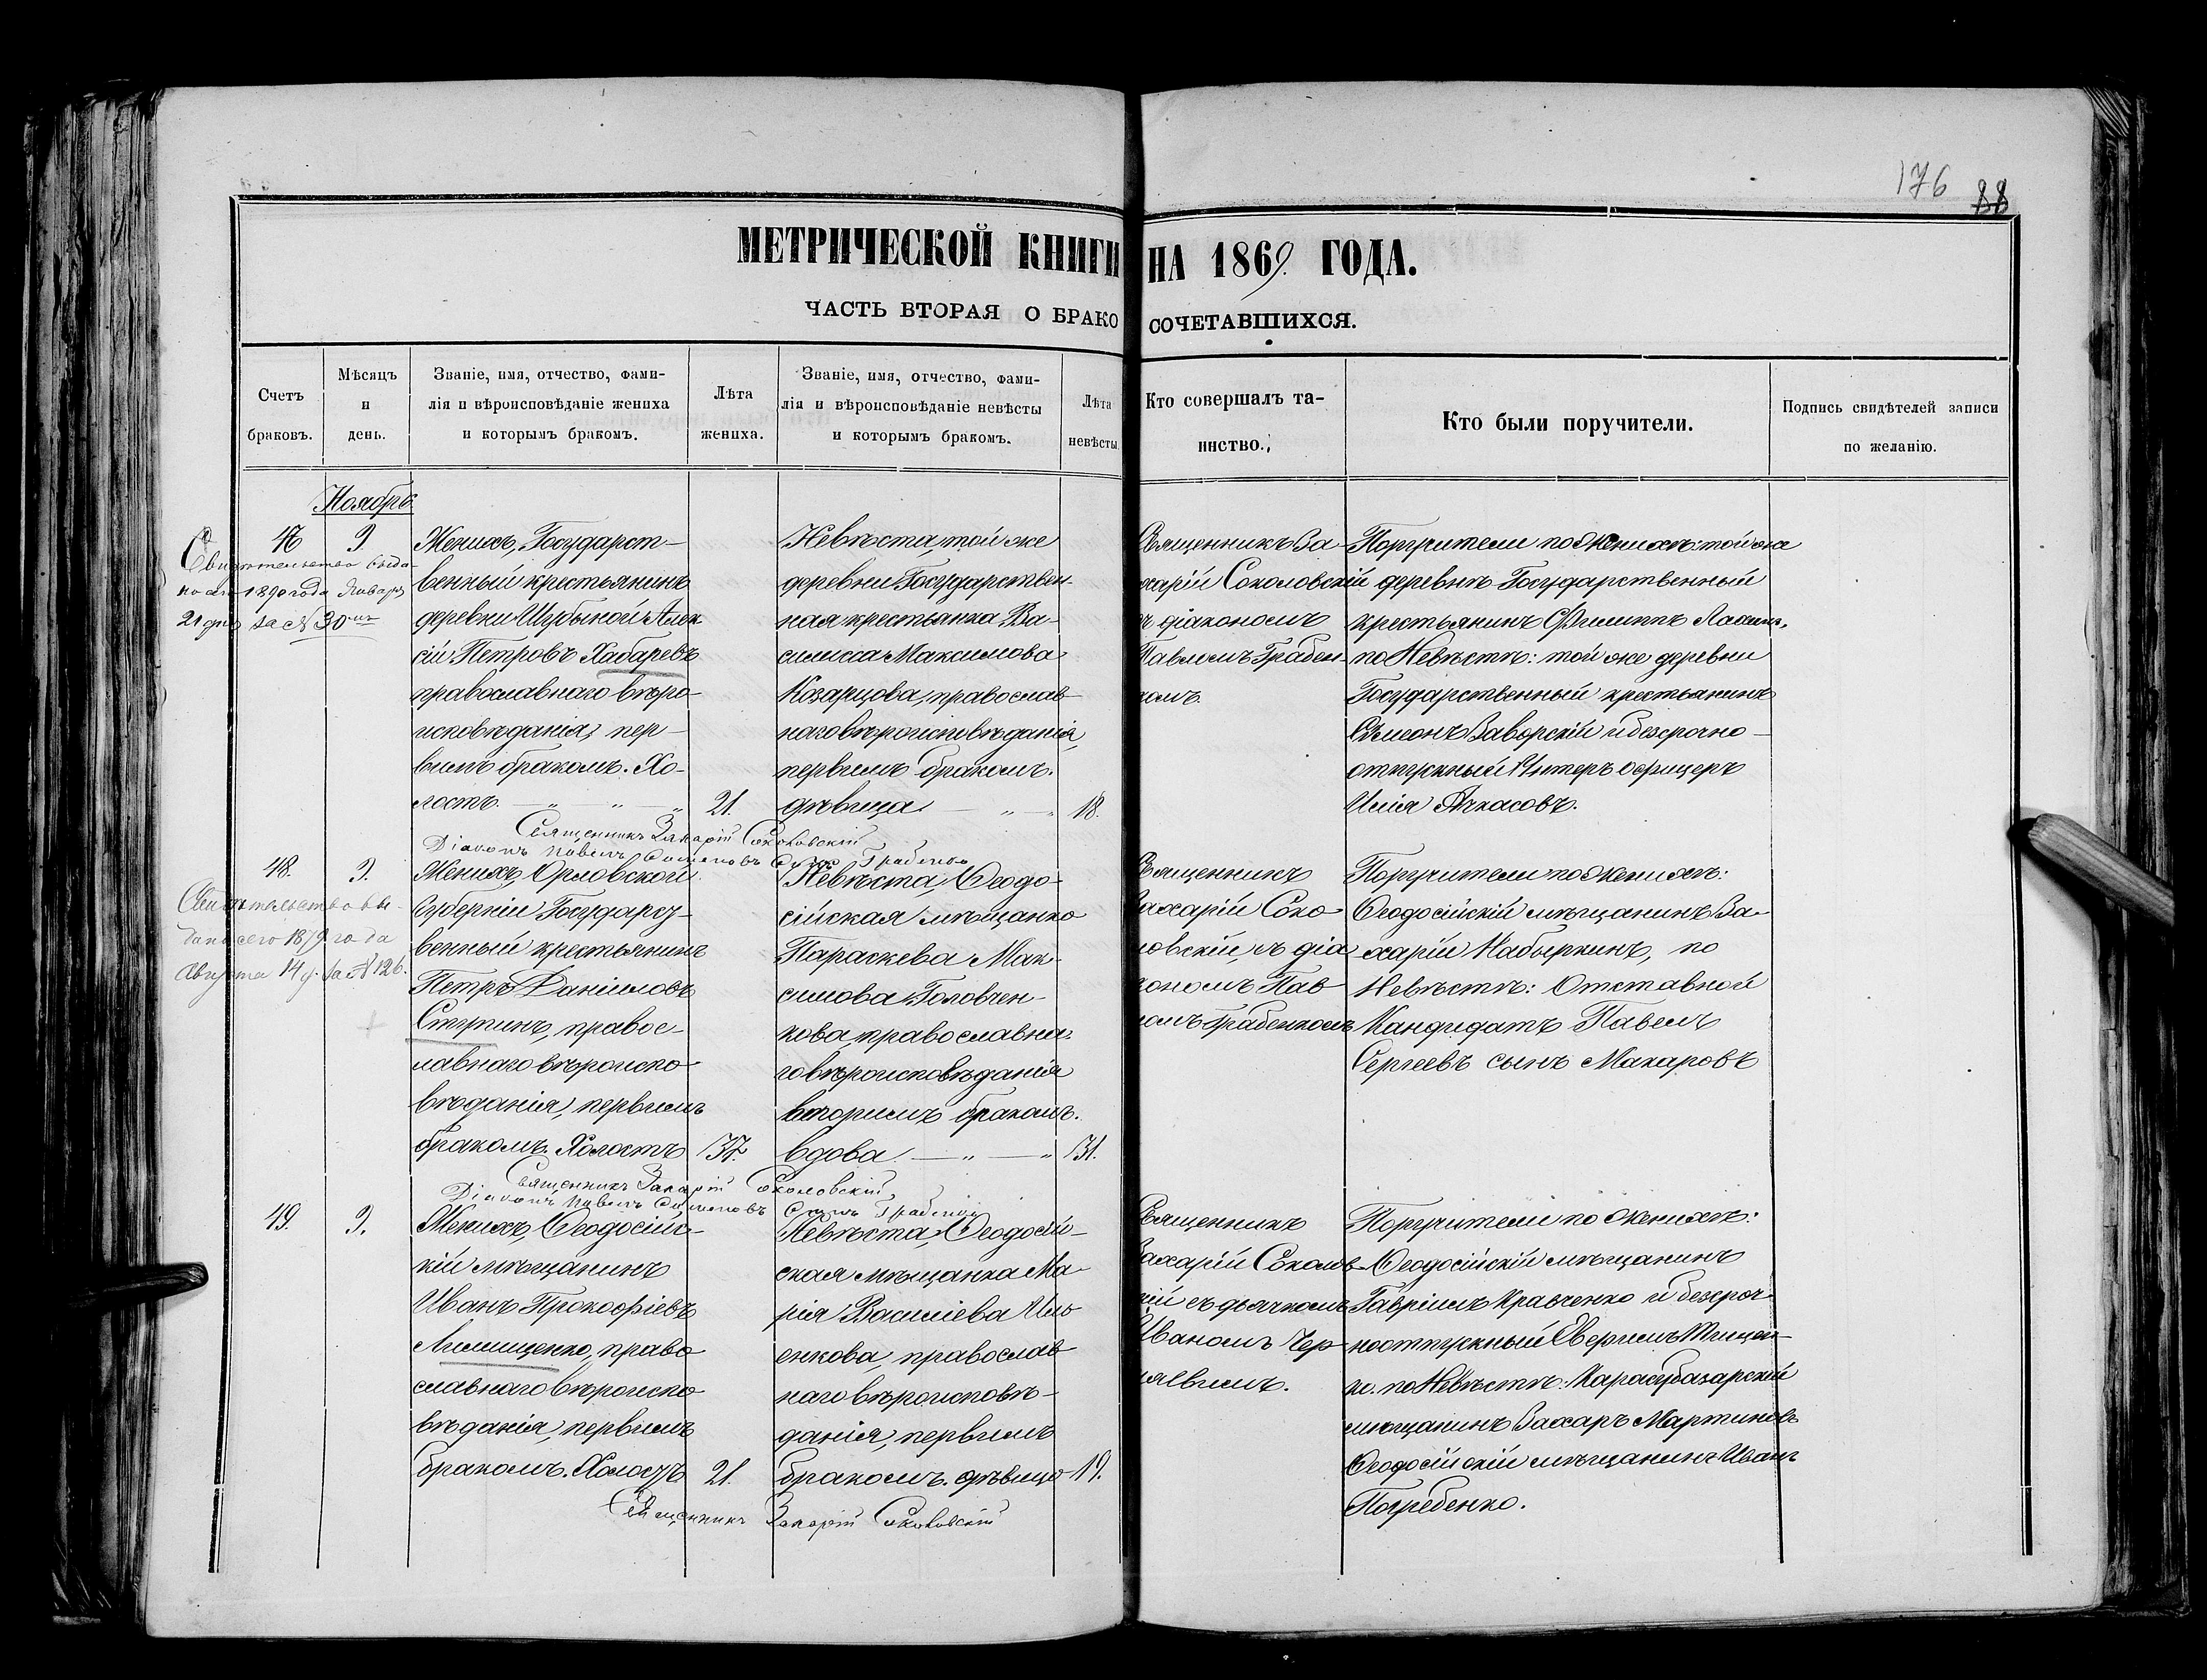 176 88
МЕТРИЧЕСКОЙ КНИГИ НА 1869 ГОДА.
ЧАСТЬ ВТОРАЯ О БРАКОСОЧЕТАВШИХСЯ.
Счетъ
браковъ.
Мѣсяцъ
и
день.
Званіе, имя, отчество, фами-
лія и вѣроисповѣданіе жениха
и которымъ бракомъ.
Лѣта
жениха.
Званіе, имя, отчество, фами-
лія и вѣроисповѣданіе невѣсты
и которымъ бракомъ.
Лѣта
невѣсты
Кто совершалъ та-
инство.
Кто были поручители.
Подпись свидѣтелей записи
по желанію.
Ноябрь
47
9.
Свидѣтельство выда-
но 1890 года Января
21 дня за № 30
Женихъ, Государст-
венный крестьянинъ
деревни Шубыной Алек
сій Петровъ Хабаревъ
православнаго вѣро-
исповѣданія, пер-
вымъ бракомъ. Хо-
лостъ.
21.
Невѣста, той же
деревни Государствен
ная крестьянка Ва-
силисса Максимова
Козарцова, православ
наго вѣроисповѣданія,
первымъ бракомъ.
дѣвица
18.
Священникъ За-
харій Соколовскій
съ діакономъ
Павломъ Грабен-
комъ.
Поручители по Женихѣ: той же
деревнѣ Государственный
крестьянинъ Филиппъ
по Невѣстѣ: той же деревни
Государственный крестьянинъ
Сѵмеонъ Заворскій и безсрочно-
отпускный Унтеръ офицеръ
Илія
Священникъ Захарій Соколовскій
Діаконъ Павелъ Сынъ Грабенко
48.
9.
Свидѣтельство вы-
дано сего 1879 года
Августа 14 д. за № 126.
Женихъ, Орловской
Губерніи Государст-
венный крестьянинъ
Петръ Даніиловъ
Ступинъ, правос-
лавнаго вѣроиспо-
вѣданія, первымъ
бракомъ. Холостъ
37.
Невѣста, Ѳеодо-
сійская мѣщанка
Параскева Мак-
симова Головчен-
кова, православна-
го вѣроисповѣданія
вторымъ бракомъ.
вдова
31.
Священникъ
Захарій Соко-
ловскій, съ діа
кономъ Пав
ломъ Грабенкомъ
Поручители по Женихѣ:
Ѳеодосійскій мѣщанинъ За-
харій Набыркинъ, по
Невѣстѣ: Отставной
Кандидатъ Павелъ
Сергѣевъ сынъ Макаровъ
Священникъ Захарій Соколовскій
Діаконъ Павелъ Сынъ Грабенко
49.
9.
Женихъ, Ѳеодосійс-
кій мѣщанинъ
Иванъ Прокофіевъ
право
славнаго вѣроиспо-
вѣданія, первымъ
бракомъ. Холостъ
21.
Невѣста, Ѳеодосій-
ская мѣщанка Ма-
рія Василіева Иль
енкова, православ
наго вѣроисповѣ-
данія, первымъ
бракомъ. дѣвица
19.
Священникъ
Захарій Соколов-
скій съ дьячкомъ
Иваномъ Чер-
Поручители по Женихѣ:
Ѳеодосійскій мѣщанинъ
Гавріилъ Кравченко и безсроч-
ноотпускный
по Невѣстѣ: Карасубазарскій
мѣщанинъ Захаръ Мартиновъ
Ѳеодосійскій мѣщанинъ Иванъ
Погребенко.
Священникъ Захарій Соколовскій